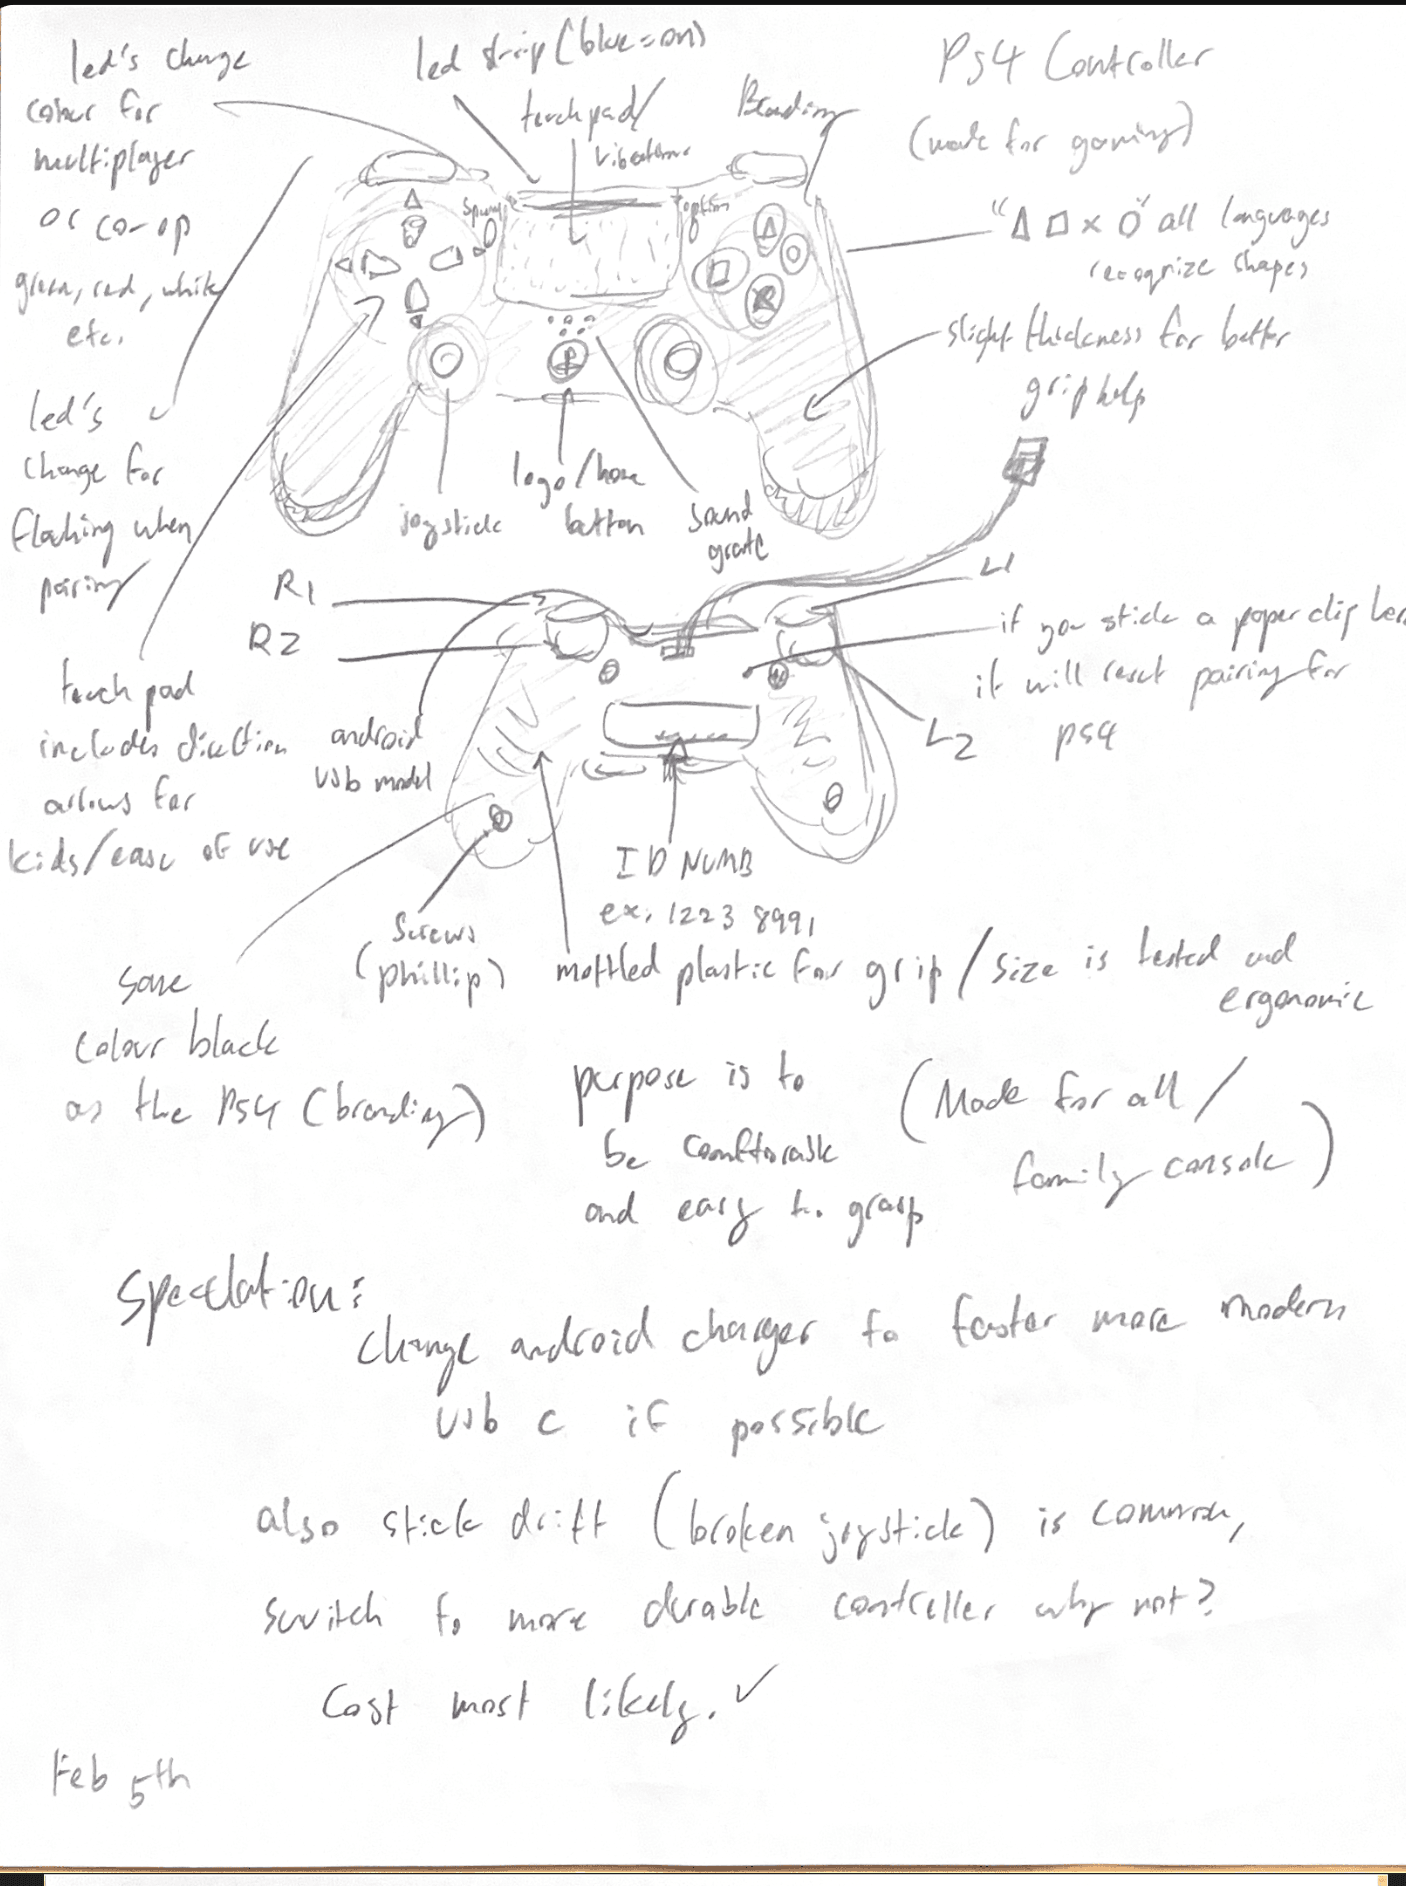 led's change
colour for
multiplayer
or co-op
green, red, white
etc.
led strip (blue = on)
touchpad/
vibrations
Branding
PS4 Controller
(made for gaming)
"△ □ × O" all languages
recognize shapes
slight thickness for better
grip help
option
led's
change for
flashing when
pairing
joystick
logo/home
button
sound
grate
R1
R2
L1
L2
if you stick a paper clip here
it will reset pairing for
ps4
touch pad
includes direction
arrows for
kids/ease of use
android
usb model
ID NUMB
ex. 1223 8991
Screws
(phillip)
mottled plastic for grip / size is tested and
ergonomic
same
colour black
as the PS4 (branding)
purpose is to
be comftorable
and easy to grasp
(Made for all /
family console)
Speculation:
change android charger to faster more modern
usb c if possible
also stick drift (broken joystick) is common,
switch to more durable controller why not?
Cost most likely. ✓
Feb 5th